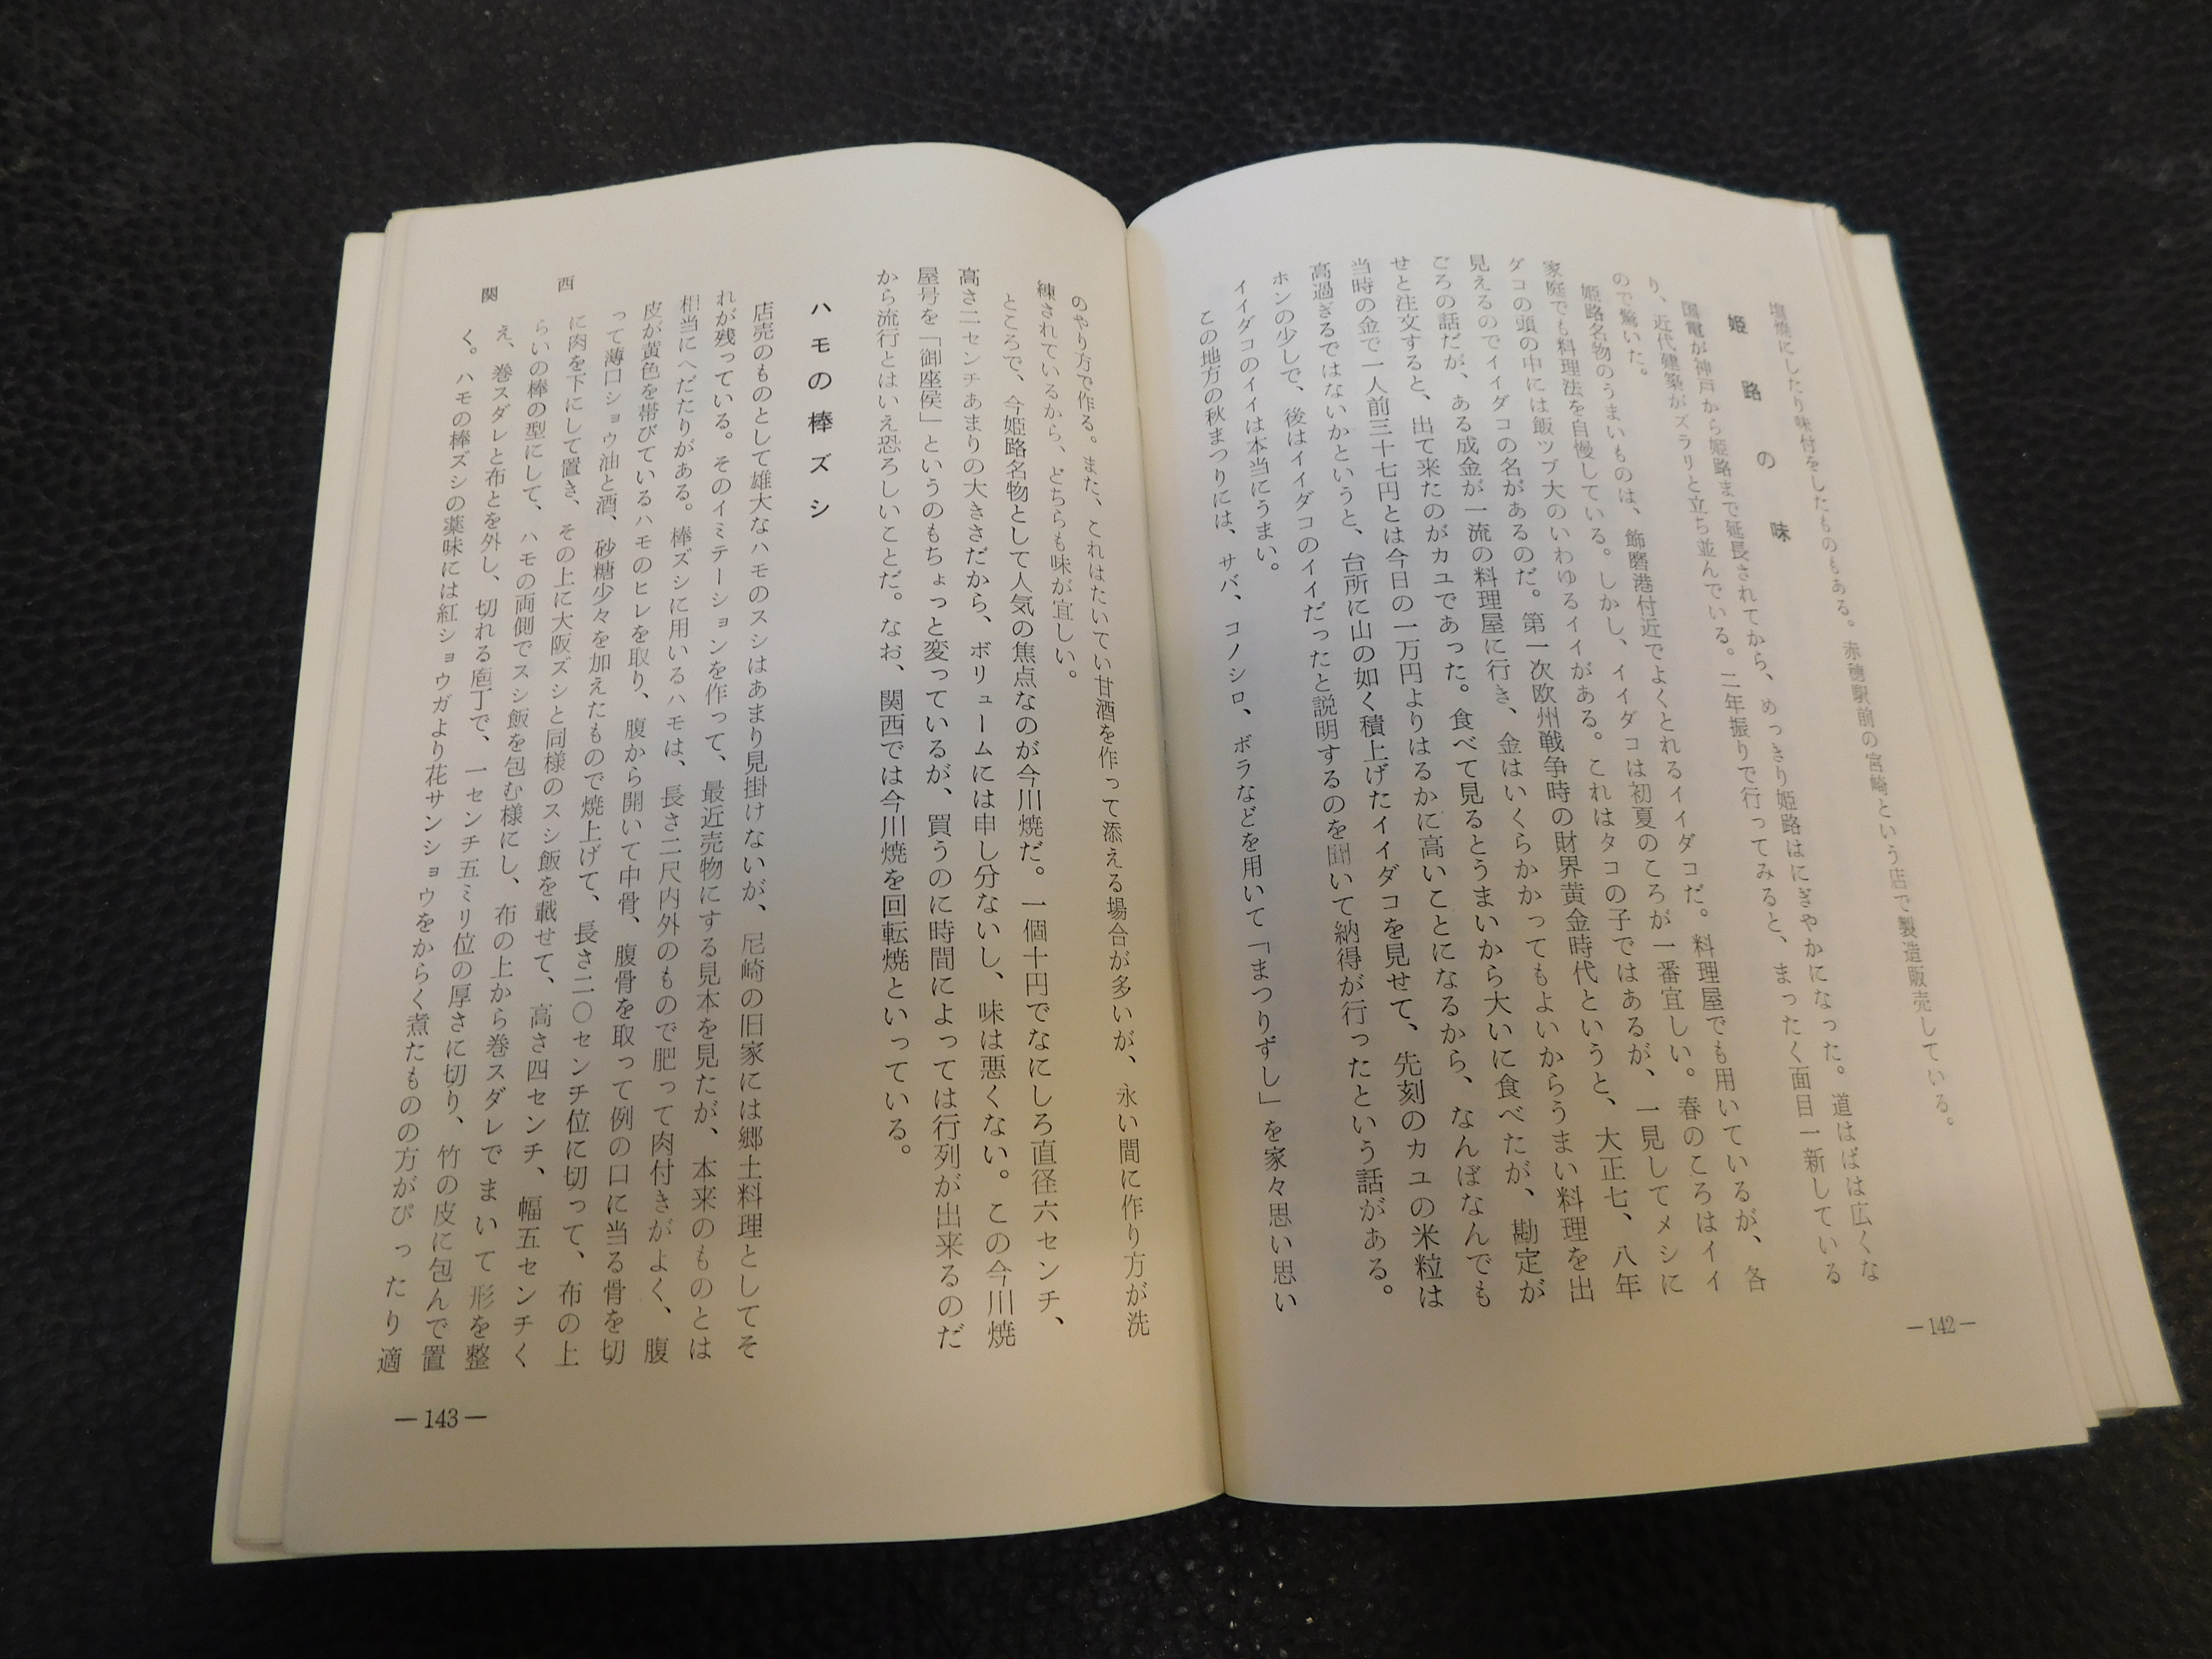 塩焼にしたり味付をしたものもある。赤穂駅前の宮崎という店で製造販売している。
姫路の味
国電が神戸から姫路まで延長されてから、めっきり姫路はにぎやかになった。道はばは広くな
り、近代建築がズラリと立ち並んでいる。二年振りで行ってみると、まったく面目一新している
ので驚いた。
姫路名物のうまいものは、飾磨港付近でよくとれるイイダコだ。料理屋でも用いているが、各
家庭でも料理法を自慢している。しかし、イイダコは初夏のころが一番宜しい。春のころはイイ
ダコの頭の中には飯ツブ大のいわゆるイイがある。これはタコの子ではあるが、一見してメシに
見えるのでイイダコの名があるのだ。第一次欧州戦争時の財界黄金時代というと、大正七、八年
ごろの話だが、ある成金が一流の料理屋に行き、金はいくらかかってもよいからうまい料理を出
せと注文すると、出て来たのがカユであった。食べて見るとうまいから大いに食べたが、勘定が
当時の金で一人前三十七円とは今日の一万円よりはるかに高いことになるから、なんぼなんでも
高過ぎるではないかというと、台所に山の如く積上げたイイダコを見せて、先刻のカユの米粒は
ホンの少しで、後はイイダコのイイだったと説明するのを聞いて納得が行ったという話がある。
イイダコのイイは本当にうまい。
この地方の秋まつりには、サバ、コノシロ、ボラなどを用いて「まつりずし」を家々思い思い
—142—
のやり方で作る。また、これはたいてい甘酒を作って添える場合が多いが、永い間に作り方が洗
練されているから、どちらも味が宜しい。
ところで、今姫路名物として人気の焦点なのが今川焼だ。一個十円でなにしろ直径六センチ、
高さ二センチあまりの大きさだから、ボリュームには申し分ないし、味は悪くない。この今川焼
屋号を「御座侯」というのもちょっと変っているが、買うのに時間によっては行列が出来るのだ
から流行とはいえ恐ろしいことだ。なお、関西では今川焼を回転焼といっている。
ハモの棒ズシ
店売のものとして雄大なハモのスシはあまり見掛けないが、尼崎の旧家には郷土料理としてそ
れが残っている。そのイミテーションを作って、最近売物にする見本を見たが、本来のものとは
相当にへだたりがある。棒ズシに用いるハモは、長さ二尺内外のもので肥って肉付きがよく、腹
皮が黄色を帯びているハモのヒレを取り、腹から開いて中骨、腹骨を取って例の口に当る骨を切
って薄口ショウ油と酒、砂糖少々を加えたもので焼上げて、長さ二〇センチ位に切って、布の上
に肉を下にして置き、その上に大阪ズシと同様のスシ飯を載せて、高さ四センチ、幅五センチく
らいの棒の型にして、ハモの両側でスシ飯を包む様にし、布の上から巻スダレでまいて形を整
え、巻スダレと布とを外し、切れる庖丁で、一センチ五ミリ位の厚さに切り、竹の皮に包んで置
く。ハモの棒ズシの薬味には紅ショウガより花サンショウをからく煮たものの方がぴったり適
関西
—143—